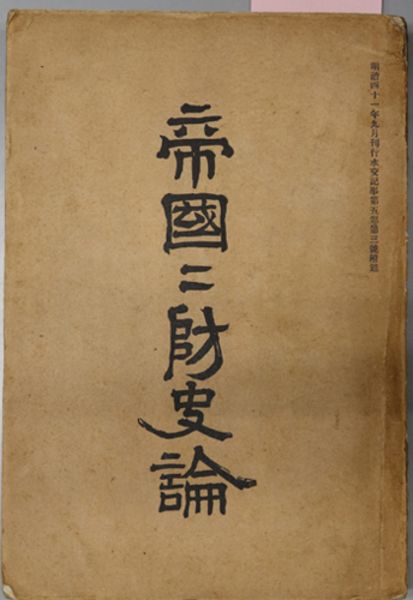 明治四十一年九月刊行水交社記事第五卷第三號附錄
帝國二防史論